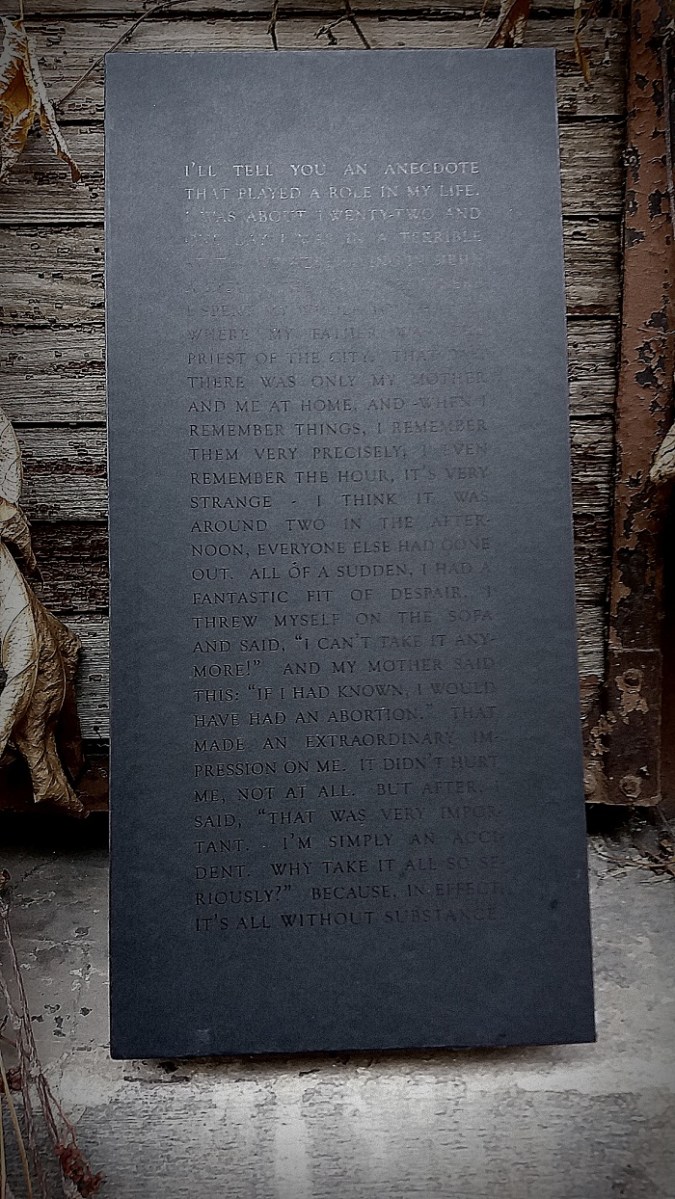 I'LL TELL YOU AN ANECDOTE
THAT PLAYED A ROLE IN MY LIFE.
I WAS ABOUT TWENTY-TWO AND
ONE DAY I WAS IN A TERRIBLE
I SPENT
WHERE MY FATHER WAS
PRIEST OF THE CITY. THAT
THERE WAS ONLY MY MOTHER
AND ME AT HOME, AND - WHEN I
REMEMBER THINGS, I REMEMBER
THEM VERY PRECISELY, I EVEN
REMEMBER THE HOUR, IT'S VERY
STRANGE - I THINK IT WAS
AROUND TWO IN THE AFTER-
NOON, EVERYONE ELSE HAD GONE
OUT. ALL OF A SUDDEN, I HAD A
FANTASTIC FIT OF DESPAIR, I
THREW MYSELF ON THE SOFA
AND SAID, "I CAN'T TAKE IT ANY-
MORE!" AND MY MOTHER SAID
THIS: "IF I HAD KNOWN, I WOULD
HAVE HAD AN ABORTION." THAT
MADE AN EXTRAORDINARY IM-
PRESSION ON ME. IT DIDN'T HURT
ME, NOT AT ALL. BUT AFTER, I
SAID, "THAT WAS VERY IMPOR-
TANT. - I'M SIMPLY AN ACCI-
DENT. WHY TAKE IT ALL SO SE-
RIOUSLY?" BECAUSE, IN EFFECT,
IT'S ALL WITHOUT SUBSTANCE